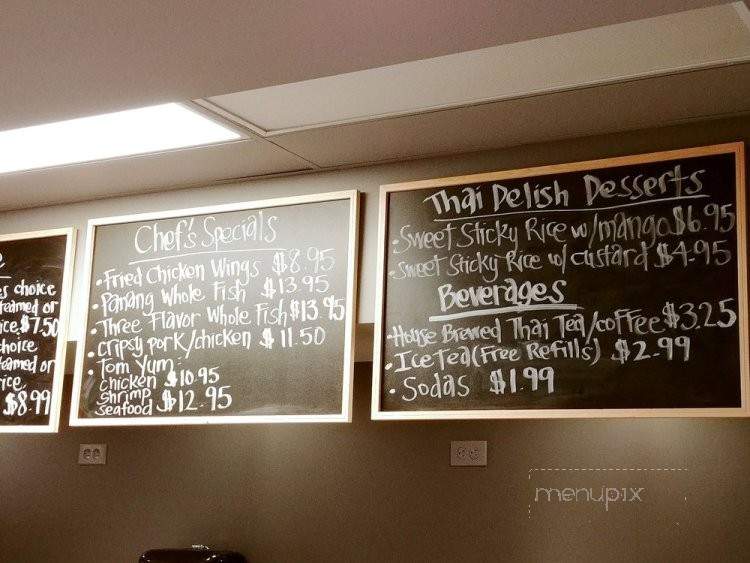 s choice
teamed or
ice $7.50
choice
teamed or
rice
$8.99
Chef's Specials
• Fried Chicken Wings $8.95
• Panang Whole Fish $13.95
• Three Flavor Whole Fish $13.95
• cripsy pork/chicken $11.50
• Tom Yum:
chicken $10.95
shrimp
seafood $12.95
Thai Delish Desserts
• Sweet Sticky Rice w/mango $6.95
• Sweet Sticky Rice w/ custard $4.95
Beverages
• House Brewed Thai Tea/coffee $3.25
• Ice Tea (Free Refill's) $2.99
• Sodas $1.99
menupix